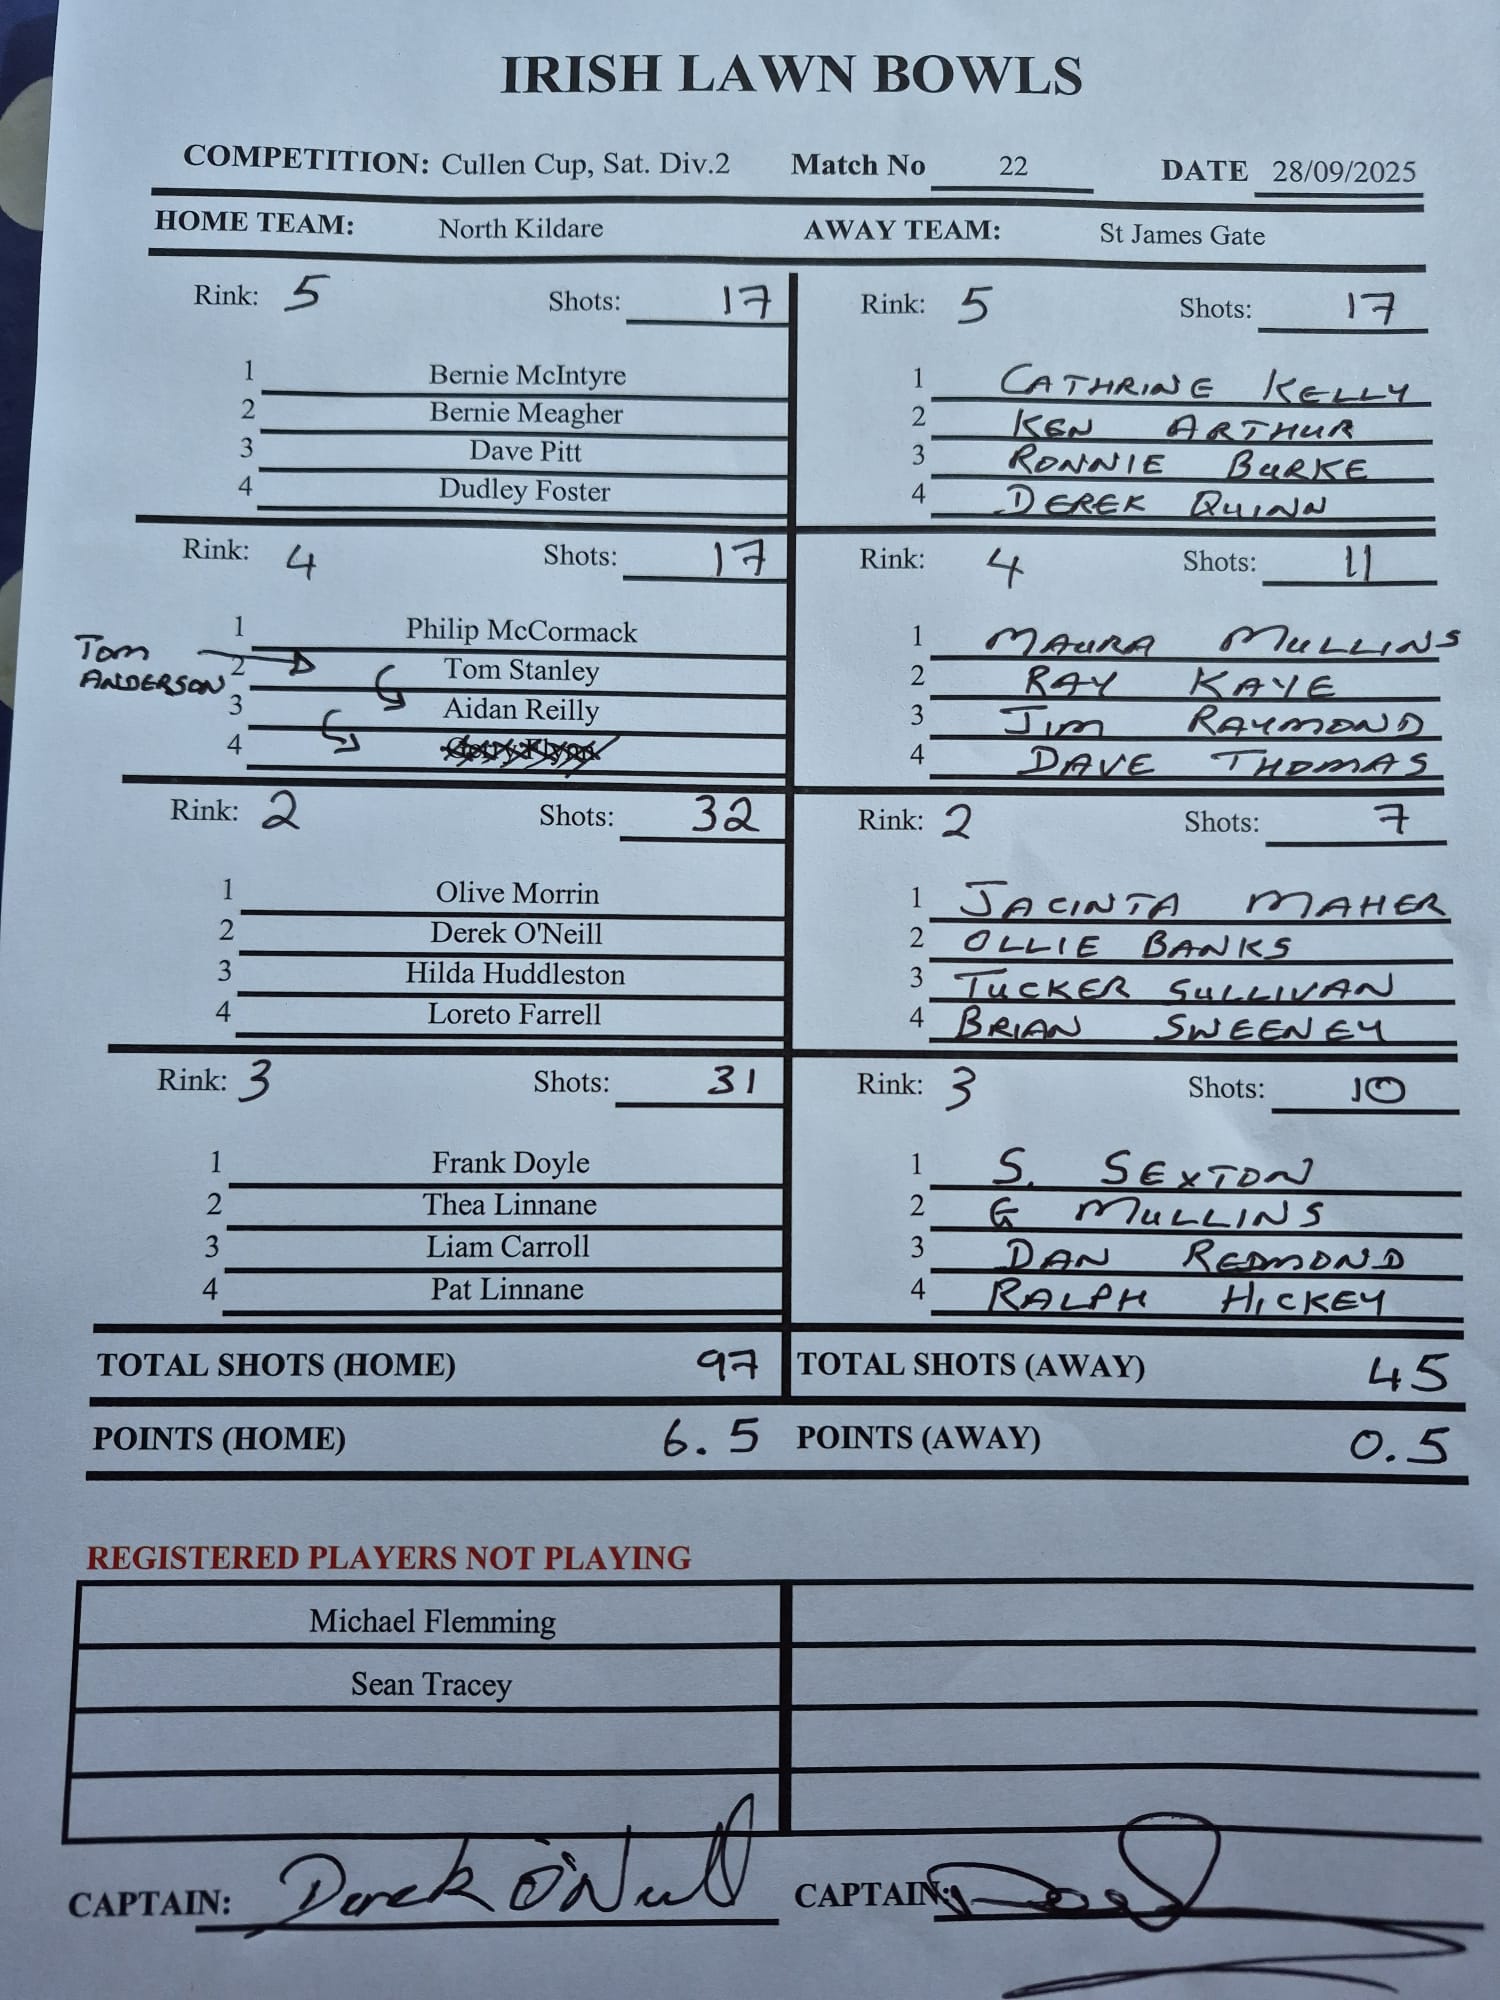 IRISH LAWN BOWLS
COMPETITION: Cullen Cup, Sat. Div.2 Match No 22 DATE 28/09/2025
HOME TEAM: North Kildare AWAY TEAM: St James Gate
Rink: 5 Shots: 17 Rink: 5 Shots: 17
1 Bernie McIntyre 1 CATHRINE KELLY
2 Bernie Meagher 2 KEN ARTHUR
3 Dave Pitt 3 RONNIE BURKE
4 Dudley Foster 4 DEREK QUINN
Rink: 4 Shots: 17 Rink: 4 Shots: 11
1 Philip McCormack 1 MAURA MULLINS
Tom
ANDERSON
2 Tom Stanley 2 RAY KAYE
3 Aidan Reilly 3 JIM RAYMOND
4 4 DAVE THOMAS
Rink: 2 Shots: 32 Rink: 2 Shots: 7
1 Olive Morrin 1 JACINTA MAHER
2 Derek O'Neill 2 OLLIE BANKS
3 Hilda Huddleston 3 TUCKER SULLIVAN
4 Loreto Farrell 4 BRIAN SWEENEY
Rink: 3 Shots: 31 Rink: 3 Shots: 10
1 Frank Doyle 1 S. SEXTON
2 Thea Linnane 2 G MULLINS
3 Liam Carroll 3 DAN REDMOND
4 Pat Linnane 4 RALPH HICKEY
TOTAL SHOTS (HOME) 97 TOTAL SHOTS (AWAY) 45
POINTS (HOME) 6.5 POINTS (AWAY) 0.5
REGISTERED PLAYERS NOT PLAYING
Michael Flemming
Sean Tracey
CAPTAIN: Derek O'Neill CAPTAIN: